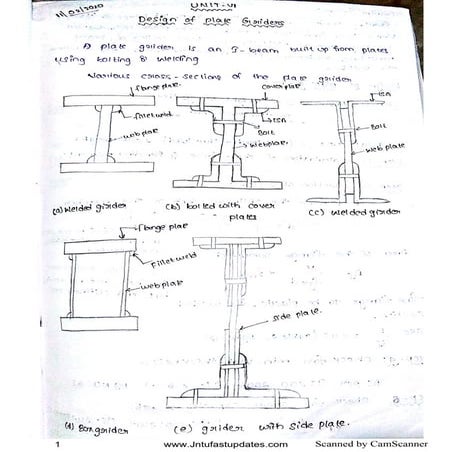 11/03/2020
UNIT-VI
Design of plate Griders
A plate grider is an I-beam built up from plates
using bolting & welding
Various cross-sections of the plate grider
flange plate
cover plate
ISA
fillet weld
ISA
Bolt
Bolt
web plate
webplate
web plate
(a) Welded girder
(b) bolted with cover
plates
(c) welded grider
flange plate
fillet weld
web plate
side plate.
(d) Box grider
(e) grider with side plate.
1
www.Jntufastupdates.com
Scanned by CamScanner